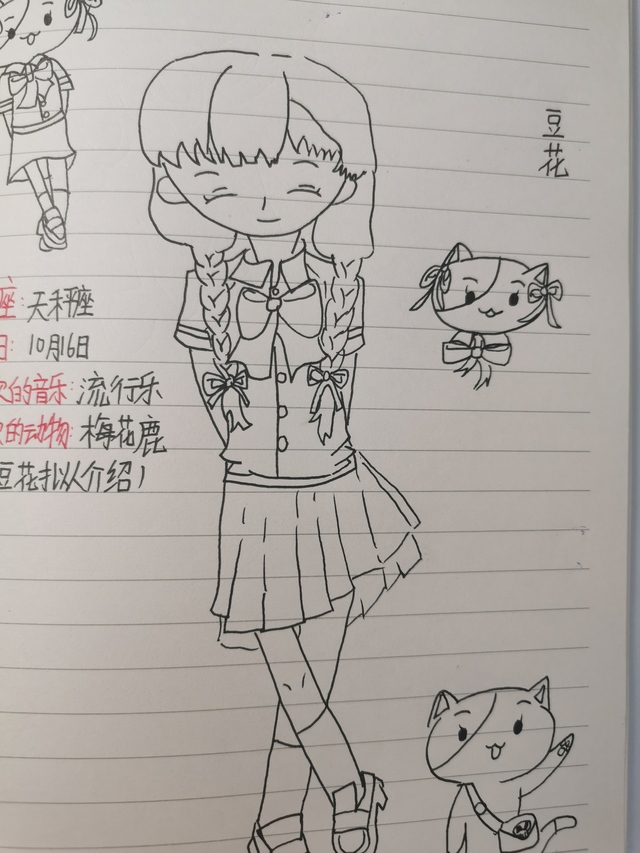 豆花
座:天秤座
日:10月16日
的音乐:流行乐
的动物:梅花鹿
豆花拟人介绍)